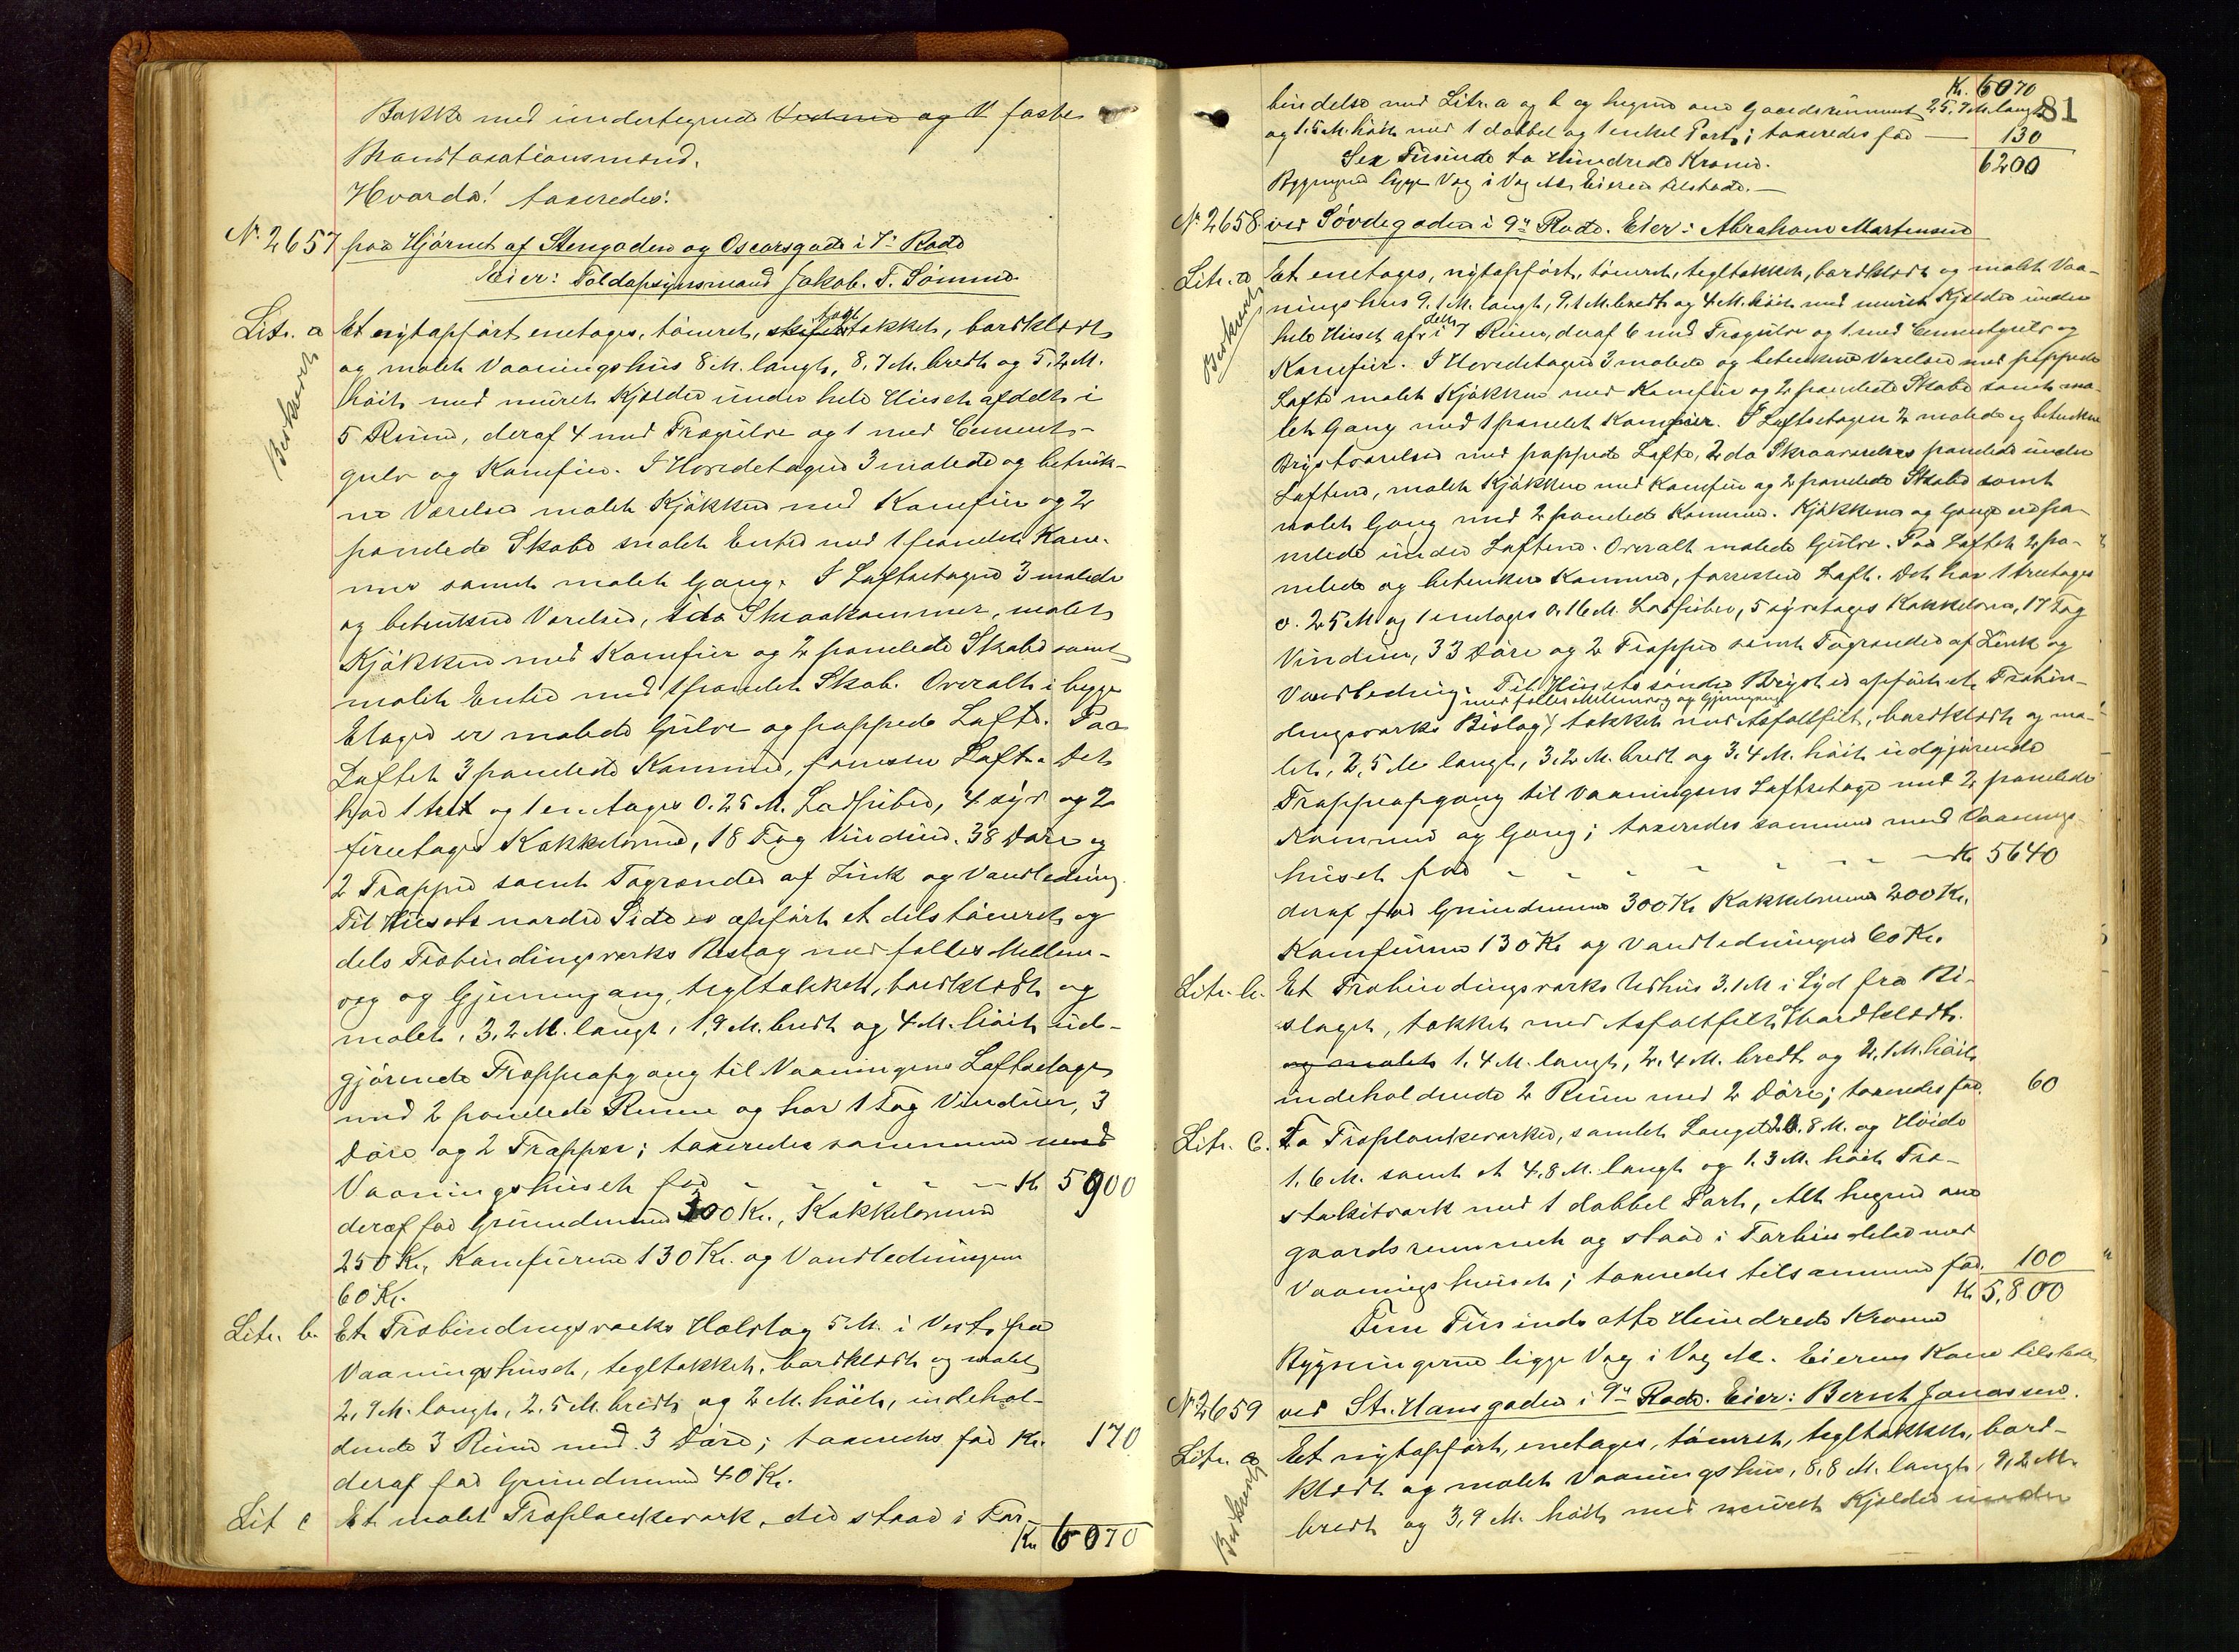 Bakke med undertegnede Vedmie og V faste
Brandtaxationsmænd.
Hvorda! taxeredes:
No. 2657 paa Hjørnet af Stengaden og Oscarsgade i 7de Rode
Eier: Toldopsynsmand Jakob. T. Sømme.
Litr. a Et nytopført enetages, tømret, skifer tegl takket, bordklædt
Beskrevet
og malet Vaaningshus 8 M. langt, 8,7 M. bredt og 5,2 M.
høit med muret Kjelder under hele Huset afdelt i
5 Rum, deraf 4 med Trægulve og 1 med Cement-
gulv og Komfur. I Hovedetagen 3 malede og betræk-
ne Værelser malet Kjøkken med Komfur og 2
panelede Skabe malet Entre med 1 panelet Kam-
mer samt malet Gang. I Loftsetagen 3 malede
og betrukne Værelser, 1 do Skraakammer, malet
Kjøkken med Komfur og 2 panelede Skabe samt
malet Entre med 1 panelet Skab. Overalt i begge
Etager er malede Gulve og pappede Lofte. Paa
Loftet 3 panelede Kammere, forresten Loft. Det
har 1 tre og 1 enetages 0.25 M. Ladpiber, 4 syv og 2
fireetages Kakkelovne, 18 Fag Vinduer, 38 Døre og
2 Trapper samt Tagrender af Zink og Vandledning.
Til Husets nordre Side er opført et dels tømret og
dels Træbindingsverks Bislag med fælles Mellem-
væg og Gjennemgang, tegltakket, bordklædt og
malet, 3,2 M. langt, 1,9 M. bredt og 4 M. høit ud-
gjørende Trappeopgang til Vaaningens Loftsetage
med 2 panelede Rum og har 1 Fag Vinduer, 3
Døre og 2 Trapper; taxeredes sammen med
Vaaningshuset for - - - - - Kr. 5900
deraf for Grundmuren 300 Kr., Kakkelovnene
250 Kr., Komfurene 130 Kr. og Vandledningen
60 Kr.
Litr. b. Et Træbindingsverks Halvtag 5 M. i Vest fra
Vaaningshuset, tegltakket, bordklædt og malet
2,9 M. langt, 2.5 M. bredt og 2 M. høit, indehol-
dende 3 Rum med 3 Døre; taxeredes for Kr. 170
deraf for Grundmuren 40 Kr.
Lit c Et malet Træplankeverk, der staar i For
Kr. 6070
Kr. 6070
81
bindelse med Litr. a og b og hegner om Gaardsrummet 25,7 M. langt
og 1.5 M. høit med 1 dobbel og 1 enkel Port; taxeredes for — 130
Sex Tusinde to Hundrede Kroner. 6200
Bygningene ligge Væg i Væg. Eieren tilstede. —
No. 2658 ved Søvdegaden i 9de Rode. Eier: Abraham Martensen
Litr. a Et enetages, nytopført, tømret, tegltakket, bordklædt og malet Vaa-
Beskrevet
ningshus 9,1 M. langt, 9,1 M. bredt og 4 M. høit med muret Kjelder under
hele Huset af delt i 7 Rum, deraf 6 med Trægulve og 1 med Cementgulv og
Komfur. I Hovedetagen 3 malede og betrukne Værelser med pappede
Lofte malet Kjøkken med Komfur og 2 panelede Skabe samt ma-
let Gang med 1 panelet Kammer. I Loftsetagen 2 malede og betrukne
Brystværelser med pappede Lofte, 2 do Skraaværelser panelede under
Loftene, malet Kjøkken med Komfur og 2 panelede Skabe samt
malet Gang med 2 panelede Kammere. Kjøkkener og Gange er pa-
nelede under Loftene. Overalt malede Gulve. Paa Loftet 2 pa-
nelede og betrukne Kammere, forresten Loft. Det har 1 treetages
0.25 M og 1 enetages 0.16 M. Ladpiber, 5 syvetages Kakkelovne, 17 Fag
Vinduer, 33 Døre og 2 Trapper samt Tagrender af Zink og
Vandledning. Til Husets søndre Bryst er opført et Træbin-
dingsverks Bislag med fælles Mellemvæg og Gjennemgang takket med Asfaltfilt, bordklædt og ma-
let, 2,5 M langt, 3.2 M. bredt og 3,4 M. høit udgjørende
Trappeopgang til Vaaningens Loftsetage med 2 panelede
Kammere og Gang; taxeredes sammen med Vaanings-
huset for - - - - - - Kr. 5640
deraf for Grundmuren 300 Kr. Kakkelovnene 200 Kr.
Komfurene 130 Kr. og Vandledningen 60 Kr.
Litr. b. Et Træbindingsverks Udhus 3,1 M i Syd fra Bi-
slaget, takket med Asfaltfilt og bordklædt.
og malet 1,4 M. langt, 2,4 M. bredt og 2,1 M. høit
indeholdende 2 Rum med 2 Døre; taxeredes for. 60
Litr. C. To Træplankeverker, samlet Længde 20.8 M. og Høide
1.6 M. samt et 4,8 M. langt og 1.3 M. høit Træ-
stakitværk med 1 dobbel Port, Alt hegner om
gaardsrummet og staar i Forbindelse med
Vaaningshuset; taxeredes tilsammen for. 100 "
Kr. 5,800
Fem Tusinde otte Hundrede Kroner
Bygningerne ligge Væg i Væg. Eierens Kone tilstede
No 2659 ved St. Hansgaden i 9de Rode. Eier: Bernt Jonassen.
Litr. a Et nytopført, enetages, tømret, tegltakket, bord-
Beskrevet
klædt og malet Vaaningshus, 8,8 M. langt, 9,2 M.
bredt og 3,9 M. høit med muret Kjelder under